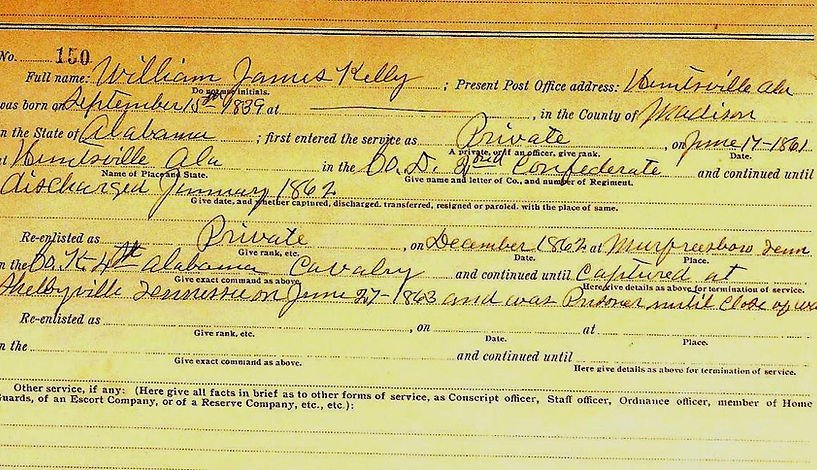 No. 150
Full name: William James Kelly ; Present Post Office address: Huntsville Ala
Do not use initials.
was born on September 15th 1839 at , in the County of Madison
in the State of Alabama ; first entered the service as Private , on June 17-1861
A private, or if an officer, give rank. Date.
at Huntsville Ala in the Co. D. 2nd Confederate and continued until
Name of Place and State. Give name and letter of Co., and number of Regiment.
discharged January 1862
Give date, and whether captured, discharged, transferred, resigned or paroled, with the place of same.
Re-enlisted as Private , on December 1862 at Murfreesboro Tenn
Give rank, etc. Date. Place.
in the Co. K 4th Alabama Cavalry and continued until Captured at
Give exact command as above. Here give details as above for termination of service.
Shelbyville Tennessee on June 27-1863 and was Prisoner until Close of war
Re-enlisted as , on at
Give rank, etc. Date. Place.
in the and continued until
Give exact command as above. Here give details as above for termination of service.
Other service, if any: (Here give all facts in brief as to other forms of service, as Conscript officer, Staff officer, Ordnance officer, member of Home
Guards, of an Escort Company, or of a Reserve Company, etc., etc.):